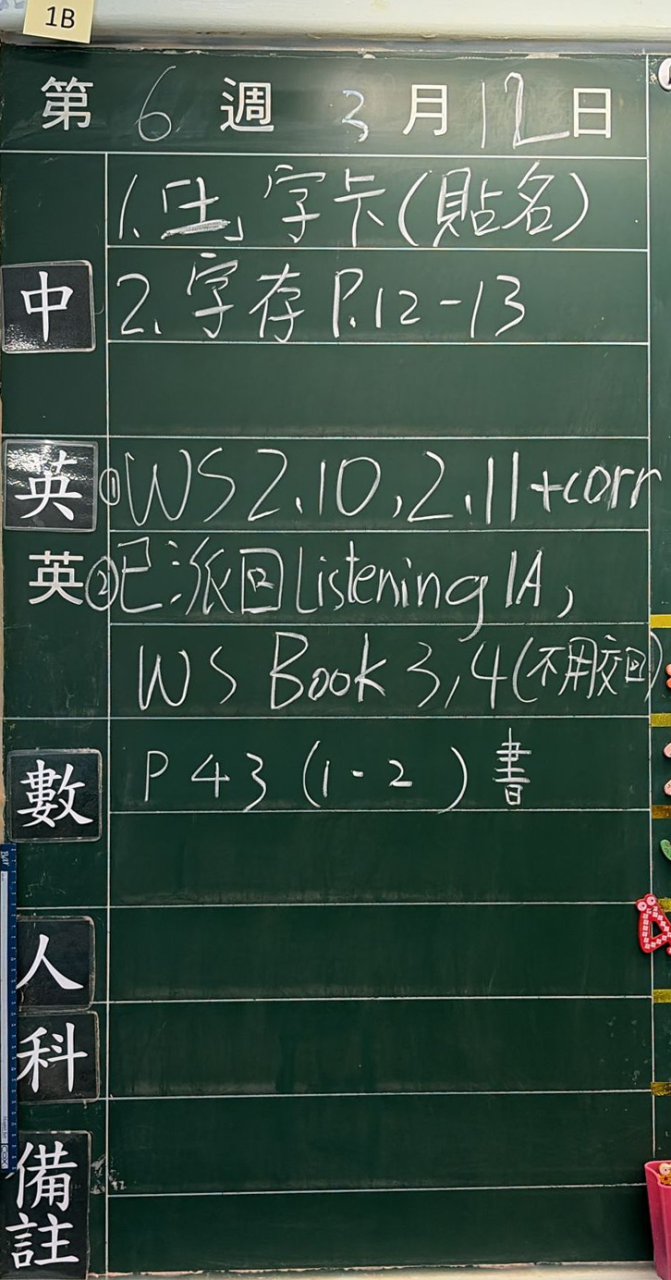 1B
第 6 週 3 月 12 日
中
1.「土」字卡(貼名)
2.字存 P.12-13
英 ①WS 2.10,2.11+corr
英 ②已派回 Listening 1A,
WS Book 3,4(不用交回)
數 P43 (1-2) 書
人
科
備註